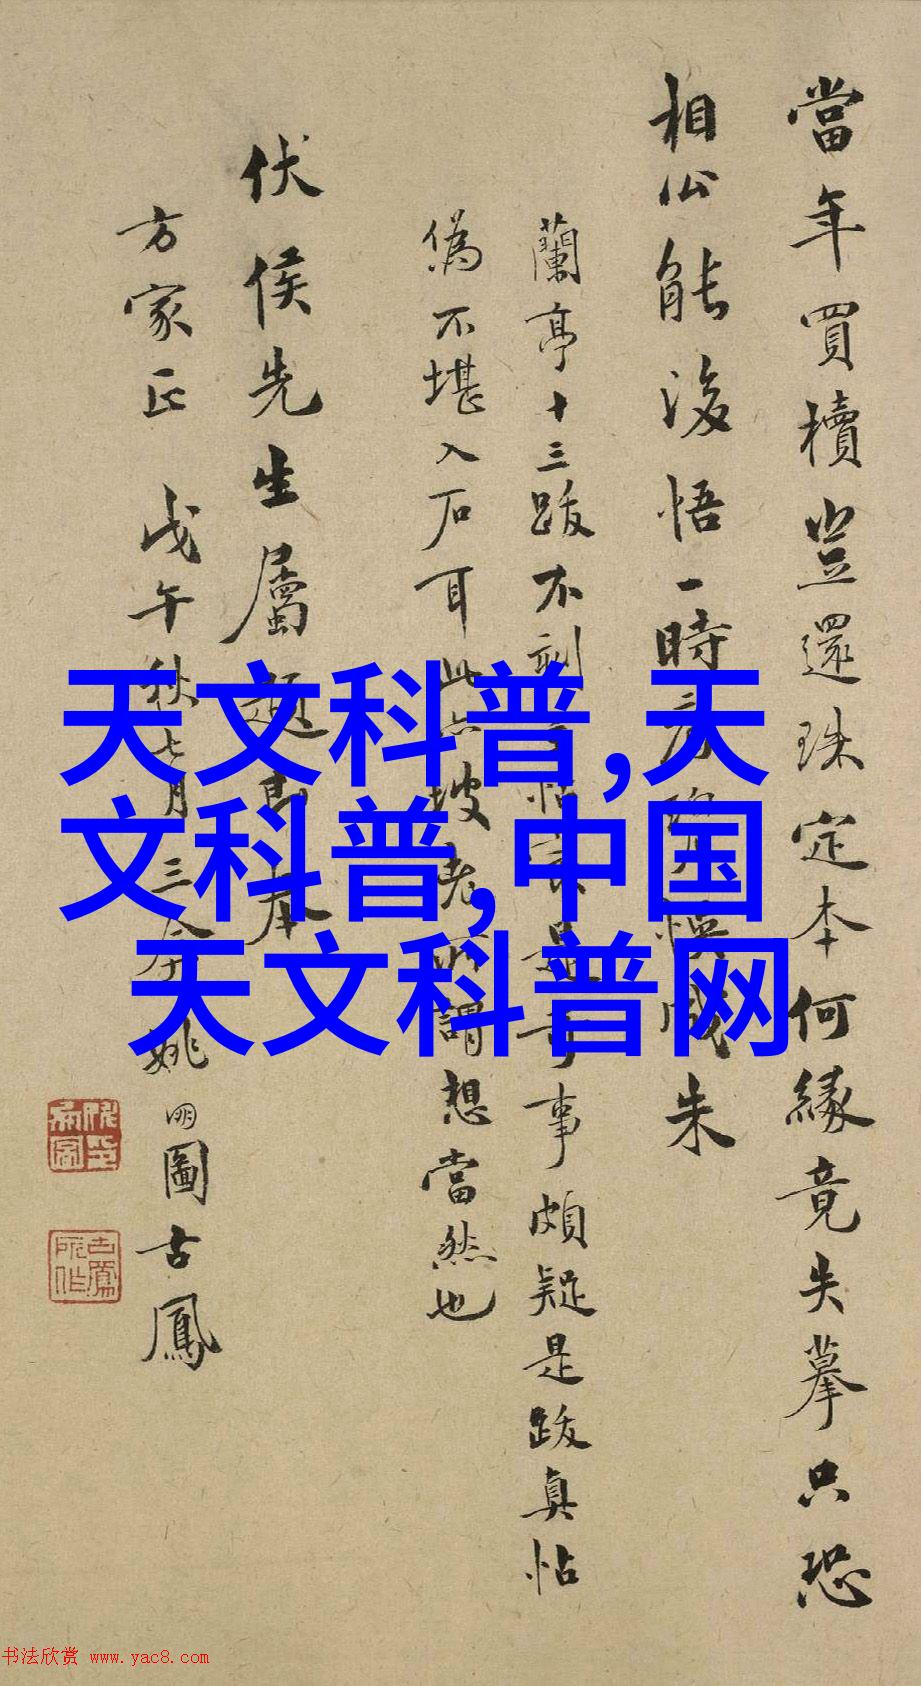 當年買櫝豈還珠定本何緣竟失摹只恐
相公能後悟一時
朱
蘭亭十三跋不刻
是
事頗疑是跋真帖
偽不堪入石耳此
坡老所謂想當然也
伏侯先生屬題即
本
方家正 戊午秋七月三
姚明圖古鳳
天文科普,天
文科普,中国
天文科普网
书法欣赏 www.yac8.com